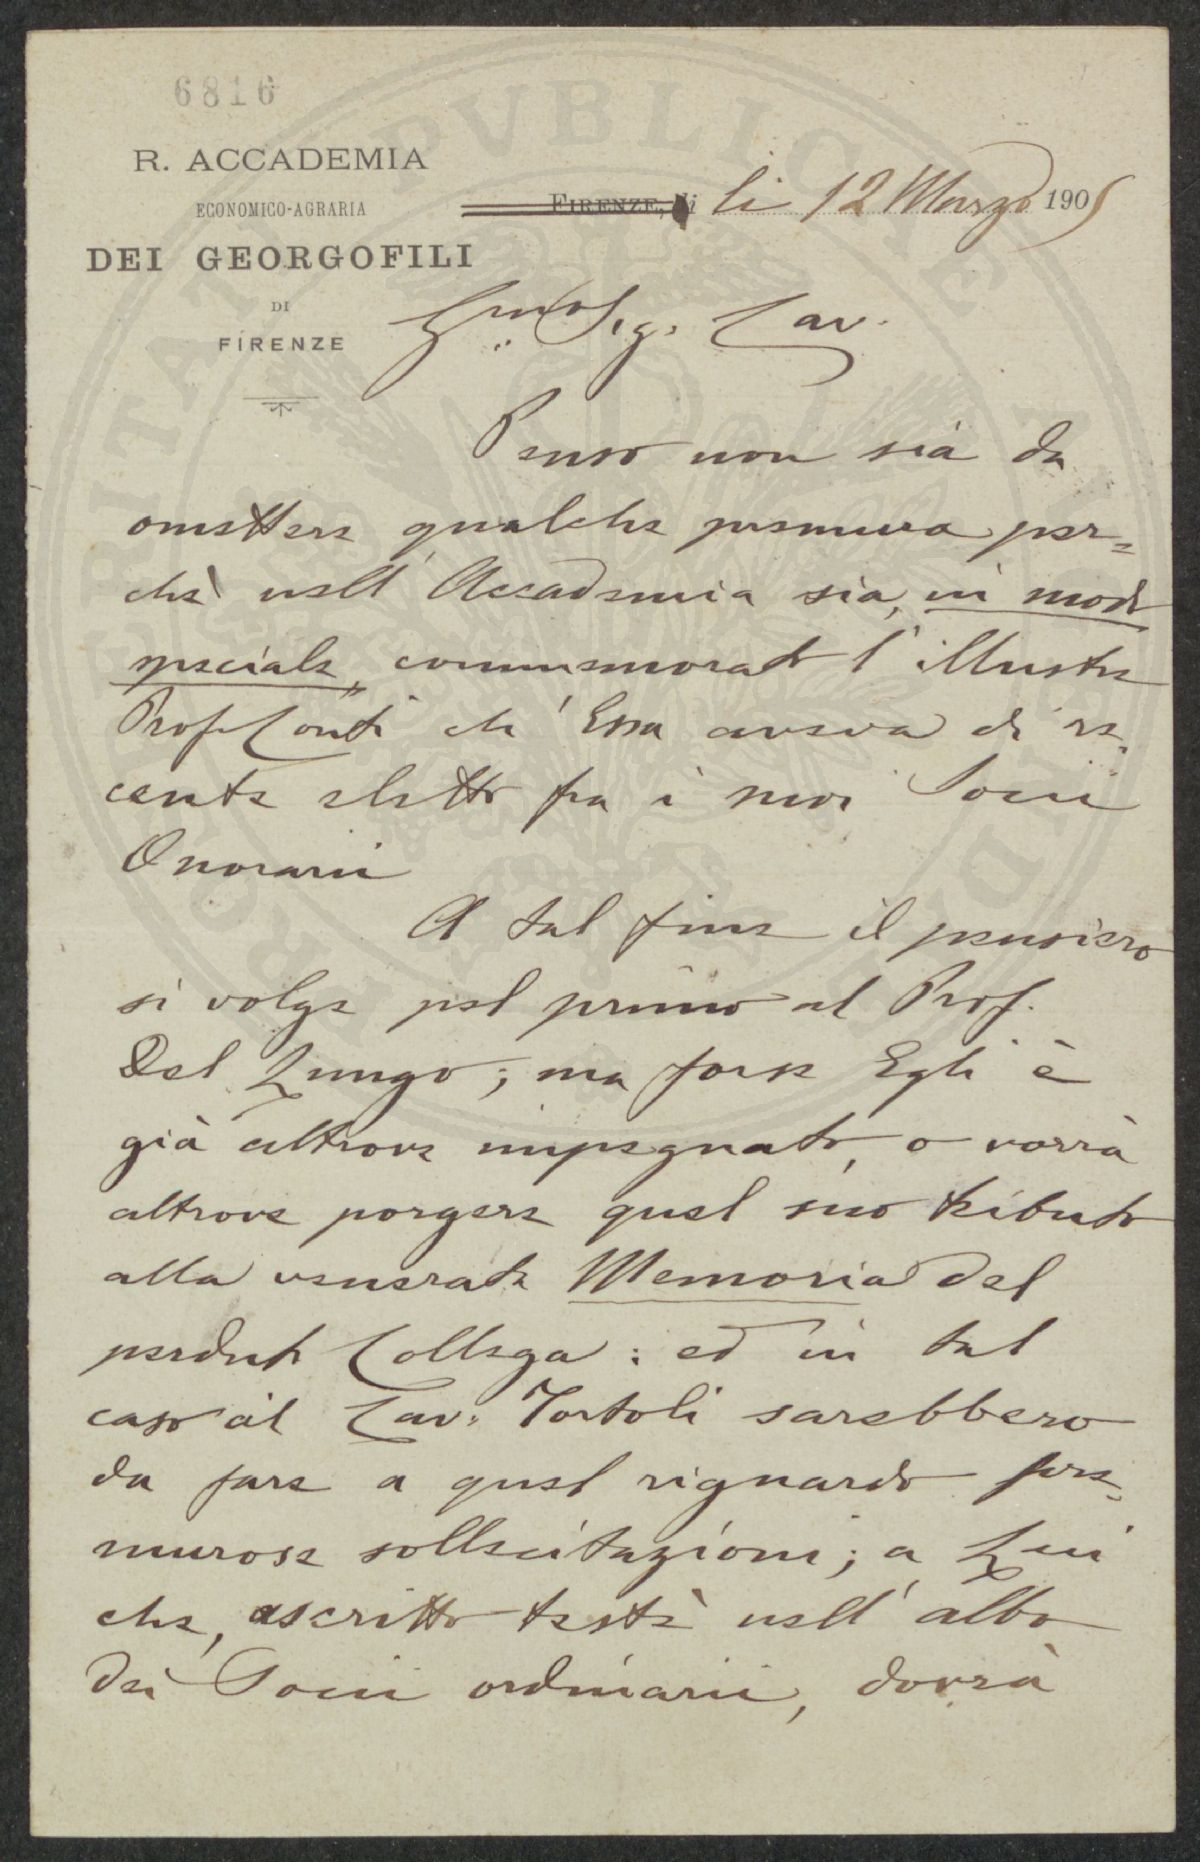 6816
R. ACCADEMIA
ECONOMICO-AGRARIA
DEI GEORGOFILI
DI
FIRENZE
FIRENZE, li li 12 Marzo 1905
Sig. Cav.
Penso non sia da
omettere qualche premura per=
chè nell' Accademia sia, in modo
speciale, commemorato l' illustre
Prof Conti ch' Essa aveva di re-
cente eletto fra i suoi Socii
Onorarii
A tal fine il pensiero
si volge pel primo al Prof.
Del Lungo; ma forse Egli è
già altrove impegnato, o vorrà
altrove porgere quel suo tributo
alla venerata Memoria del
perduto Collega: ed in tal
caso al Cav. Tortoli sarebbero
da fare a quel riguardo pre-
murose sollecitazioni; a Lui
che, ascritto testè nell' albo
dei Socii ordinarii, dovrà